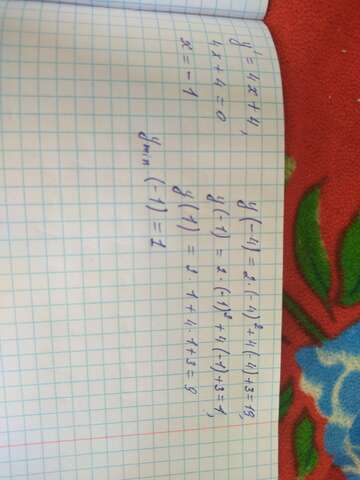 y' = 4x + 4,
4x + 4 = 0
x = -1
y(-4) = 2·(-4)² + 4(-4) + 3 = 19,
y(-1) = 2·(-1)² + 4(-1) + 3 = 1,
y(1) = 2·1 + 4·1 + 3 = 9
y min (-1) = 1